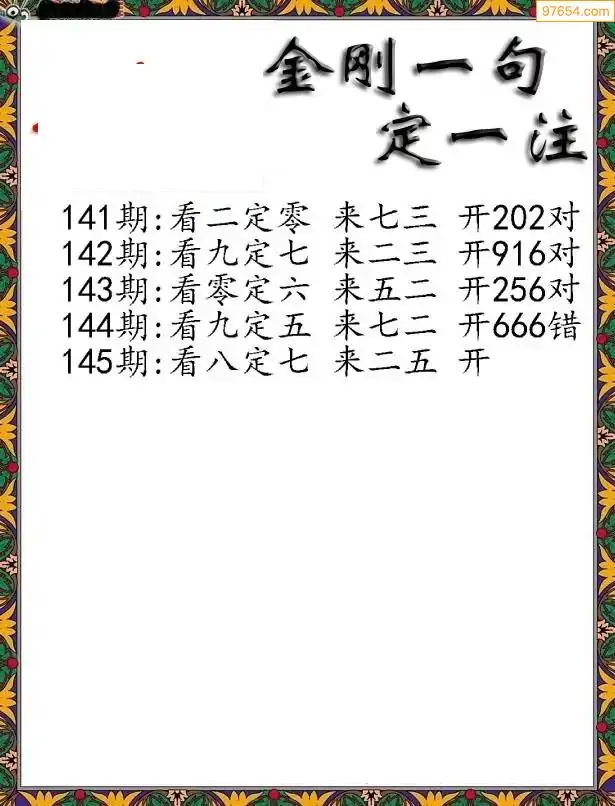 97654.com
金刚一句
定一注
141期:看二定零 来七三 开202对
142期:看九定七 来二三 开916对
143期:看零定六 来五二 开256对
144期:看九定五 来七二 开666错
145期:看八定七 来二五 开